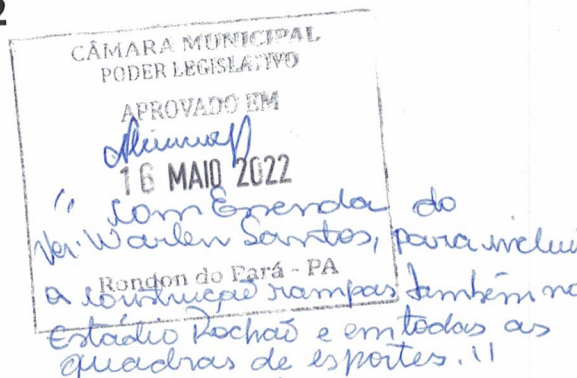 2
CÂMARA MUNICIPAL
PODER LEGISLATIVO
APROVADO EM
16 MAIO 2022
" com Emenda do
Ver. Warlen Santos, para inclui
Rondon do Pará - PA
a construção rampas também no
Estádio Rochaõ e em todas as
quadras de esportes. "